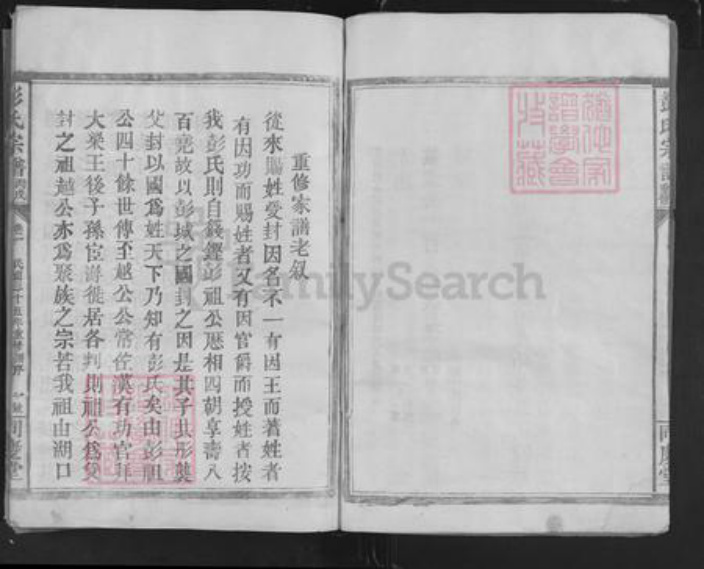 重修家譜老叙
從來賜姓受封因名不一有因王而著姓者
有因功而賜姓者又有因官爵而授姓者按
我彭氏則自籛鏗彭祖公歷相四朝享壽八
百堯故以彭城之國封之因是其子其形襲
父封以國爲姓天下乃知有彭氏矣由彭祖
公四十餘世傳至越公公常佐漢有功官拜
大梁王後子孫宦游徙居各判則祖公爲
封之祖越公亦爲聚族之宗若我祖由湖口
彭氏宗譜
丙戌
卷一
民國三十五年
FamilySearch